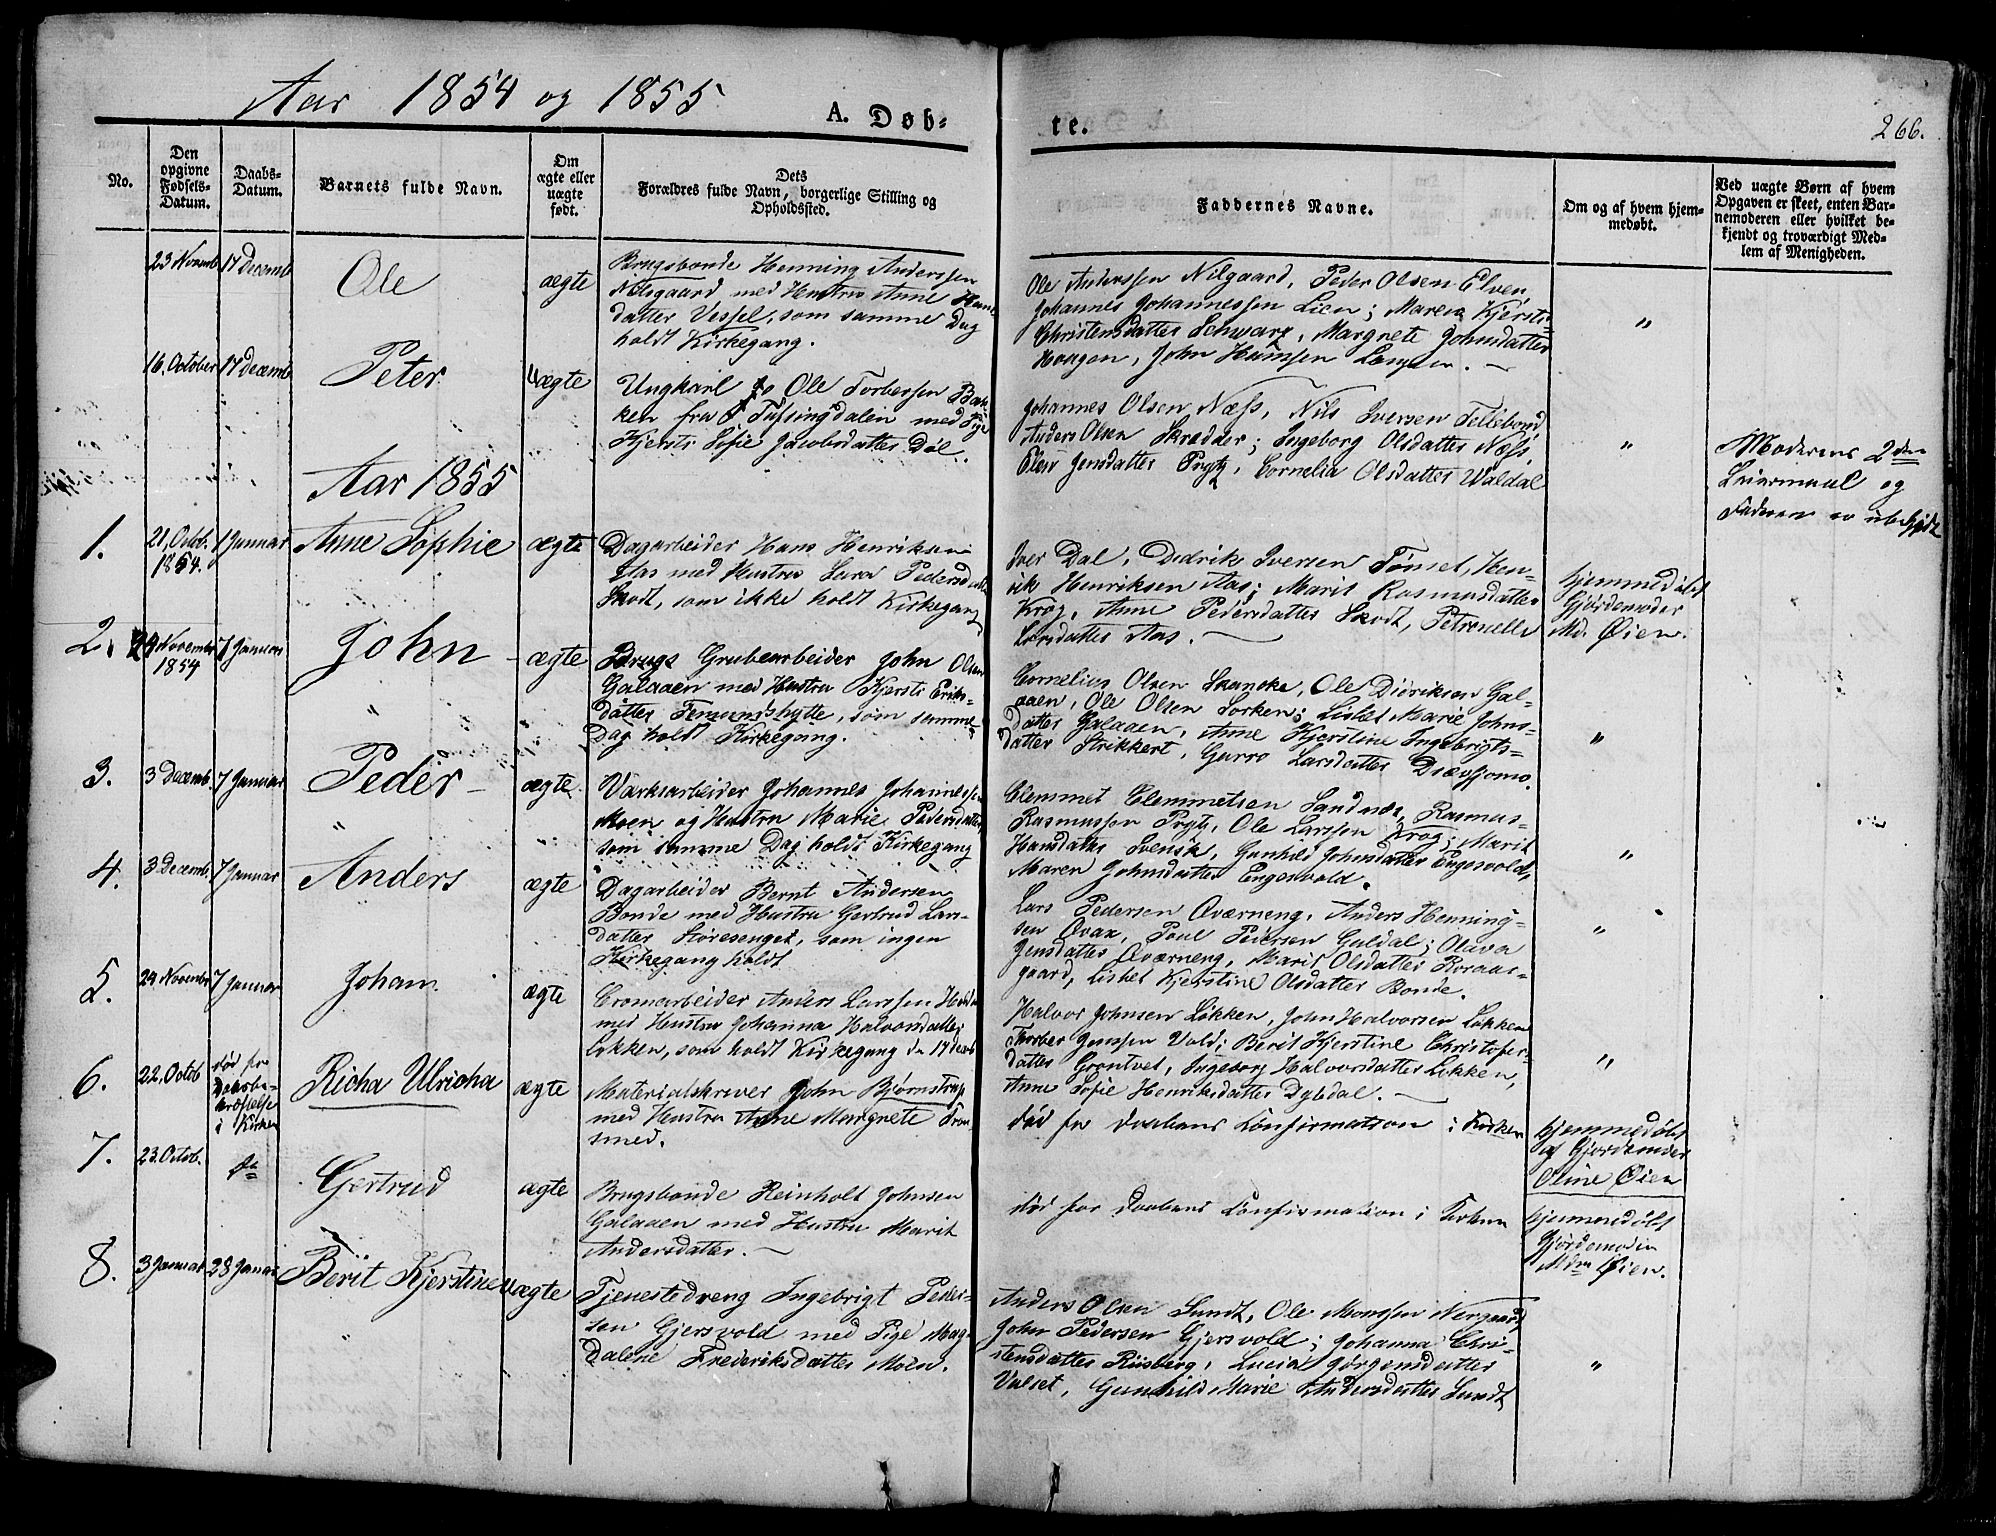 Aar 1854 og 1855
A. Døb-
te.
266.
No.
Den
opgivne
Fødsels-
Datum.
Daabs-
Datum.
Barnets fulde Navn.
Om
ægte eller
uægte
født.
Dets
Forældres fulde Navn, borgerlige Stilling og
Opholdssted.
Faddernes Navne.
Om og af hvem hjem-
medøbt.
Ved uægte Børn af hvem
Opgaven er skeet, enten Bar-
nemoderen eller hvilket be-
kjendt og troværdigt Med-
lem af Menigheden.
23 Novemb
17 Decemb
Ole
ægte
Brugsbonde Henning Anderssen
Nilsgaard med Hustru Anne Hans
datter Vessel, som samme Dag
holdt Kirkegang.
Ole Anderssen Nilgaard, Peder Olsen Elven
Johannes Johannessen Lien; Maren Kjersti
Christensdatter Schwarz, Margrete Johnsdatter
Haagen, John Hansen
"
16. October
17 Decemb
Peter
Uægte
Ungkarl Ole Torbersen Bak-
ken fra Tufsingdalen med Pige
Kjersti Sofie Jacobsdatter Døl.
Johannes Olsen Næss, Nils Iversen Tellebond
Anders Olsen Skrædder; Ingeborg Olsdatter Næss,
Elen Jensdatter Prytz, Cornelia Olsdatter Waldal
"
Moderens 2den
Leiermaal og
Faderen er
Aar 1855
1.
21. Octob.
1854.
1 Januar
Anne Sophie
ægte
Dagarbeider Hans Henriksen
Aas med Hustru Sara Pedersdatter
Skodt, som ikke holdt Kirkegang
Iver Dal, Didrik Iversen Tønset, Hen-
rik Henriksen Aas; Marit Rasmusdatter
Krog, Anne Pedersdatter Skodt, Petronelle
Larsdatter Aas.
hjemmedøbt
Gjordemoder
Md. Øien.
2.
29 November
1854
7 Januar
John
ægte
Brugs Grubearbeider John Olsen
Galaaen med Hustru Kjersti Eriks-
datter Femundshytte, som samme
Dag holdt Kirkegang.
Cornelius Olsen Skancke, Ole Didriksen Gal-
aaen, Ole Olsen Sorken; Lisbet Marie Johns-
datter Galaaen, Anne Kjerstine Ingebrigts-
datter Strikkert, Guro Larsdatter Drævsjømo.
"
3.
3 Decemb.
7 Januar
Peder
ægte
Værksarbeider Johannes Johannessen
Moen og Hustru Marie Pedersdatter
som samme Dag holdt Kirkegang
Clemmet Clemmetsen Sandnæs, Rasmus
Rasmussen Prytz, Ole Larssen Krog; Marit
Hansdatter Svensk, Gunhild Johnsdatter Engesvold,
Maren Johnsdatter Engesvold.
"
4.
3 Decemb.
7 Januar
Anders
ægte
Dagarbeider Bernt Andersen
Bonde med Hustru Gertrud Lars-
datter Støresenget, som ingen
Kirkegang holdt
Lars Pedersen Qværneng, Anders Henning-
sen Ovax, Poul Pedersen Guldal; Olava
Jensdatter Qværneng, Marit Olsdatter Roraas-
gaard, Lisbet Kjerstine Olsdatter Bonde.
"
5.
24 Novembr
7 Januar
Johan
ægte
Cromarbeider Anders Larssen
med Hustru Johanna Halvorsdatter
Løkken, som holdt Kirkegang
Halvor Johnsen Løkken, John Halvorsen Løkken
Thorber Jenssen Vold; Berit Kjerstine Christofers-
datter Grontvet, Ingeborg Halvorsdatter Løkken,
Anne Sofie Henriksdatter Dybdal.
"
6.
22. Octob
død før
Daabsbe-
kræftelse
i Kirken
Richa Ulricha
ægte
Materialskriver John Bjørnstrup
med Hustru Anne Margrete Trons
med.
død før Daabens Confirmation i Kirken
hjemmedøbt
af Gjordemoder
Oline Øien
7.
23. Octob.
Gertrud
ægte
Brugsbonde Reinholt Johnsen
Galaaen med Hustru Marit
Andersdatter.
død før Daabens Confirmation i Kirken
hjemmedøbt
Gjordemoder
Mdm Øien.
8.
3 Januar
28 Januar
Berit Kjerstine
Uægte
Tjenestedreng Ingebrigt Peder-
sen Gjersvold med Pige Mag-
dalene Frederiksdatter Moen.
Anders Olsen Sundt, Ole Monssen Nergaard,
John Pedersen Gjersvold; Johanna Chri-
stensdatter Riisberg, Lucia Jørgensdatter
Valset, Gunhild Marie Andersdatter Sundt
"